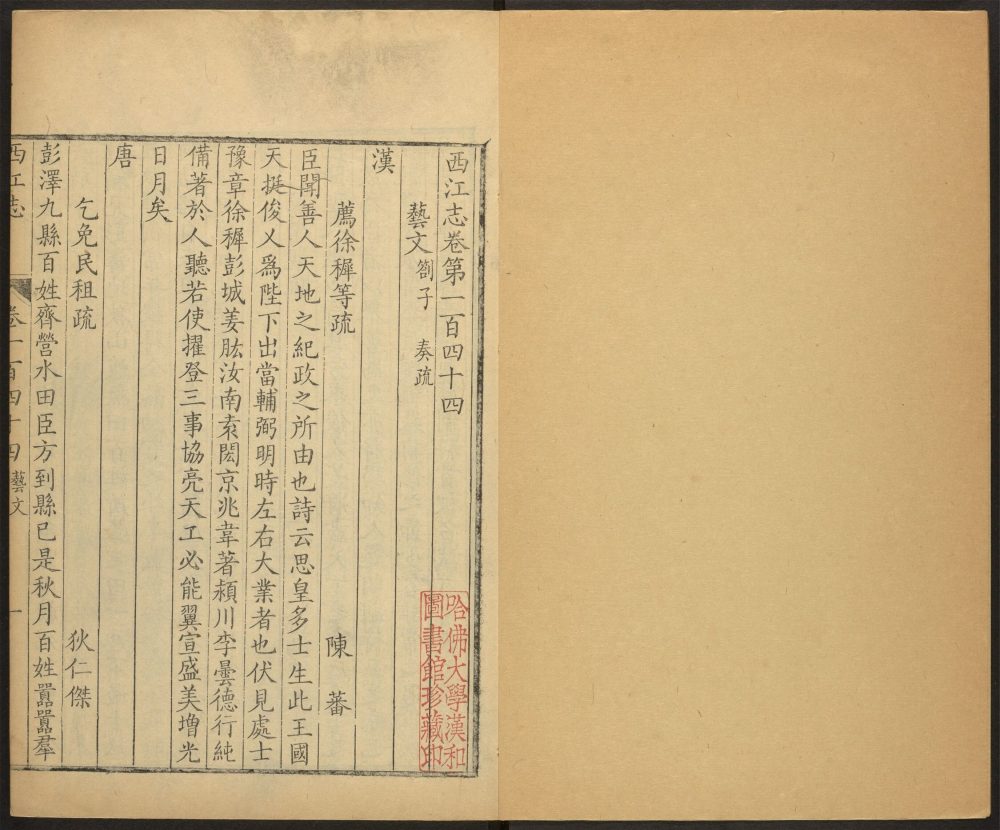 西江志卷第一百四十四
藝文 劄子 奏疏
漢
薦徐穉等疏 陳蕃
臣聞善人天地之紀政之所由也詩云思皇多士生此王國
天挺俊乂爲陛下出當輔弼明時左右大業者也伏見處士
豫章徐穉彭城姜肱汝南袁閎京兆韋著潁川李曇德行純
備著於人聽若使擢登三事協亮天工必能翼宣盛美增光
日月矣
唐
乞免民租疏 狄仁傑
彭澤九縣百姓齊營水田臣方到縣已是秋月百姓嚻嚻羣
西江志 卷一百四十四 藝文 一
哈佛大學漢和
圖書館珍藏印